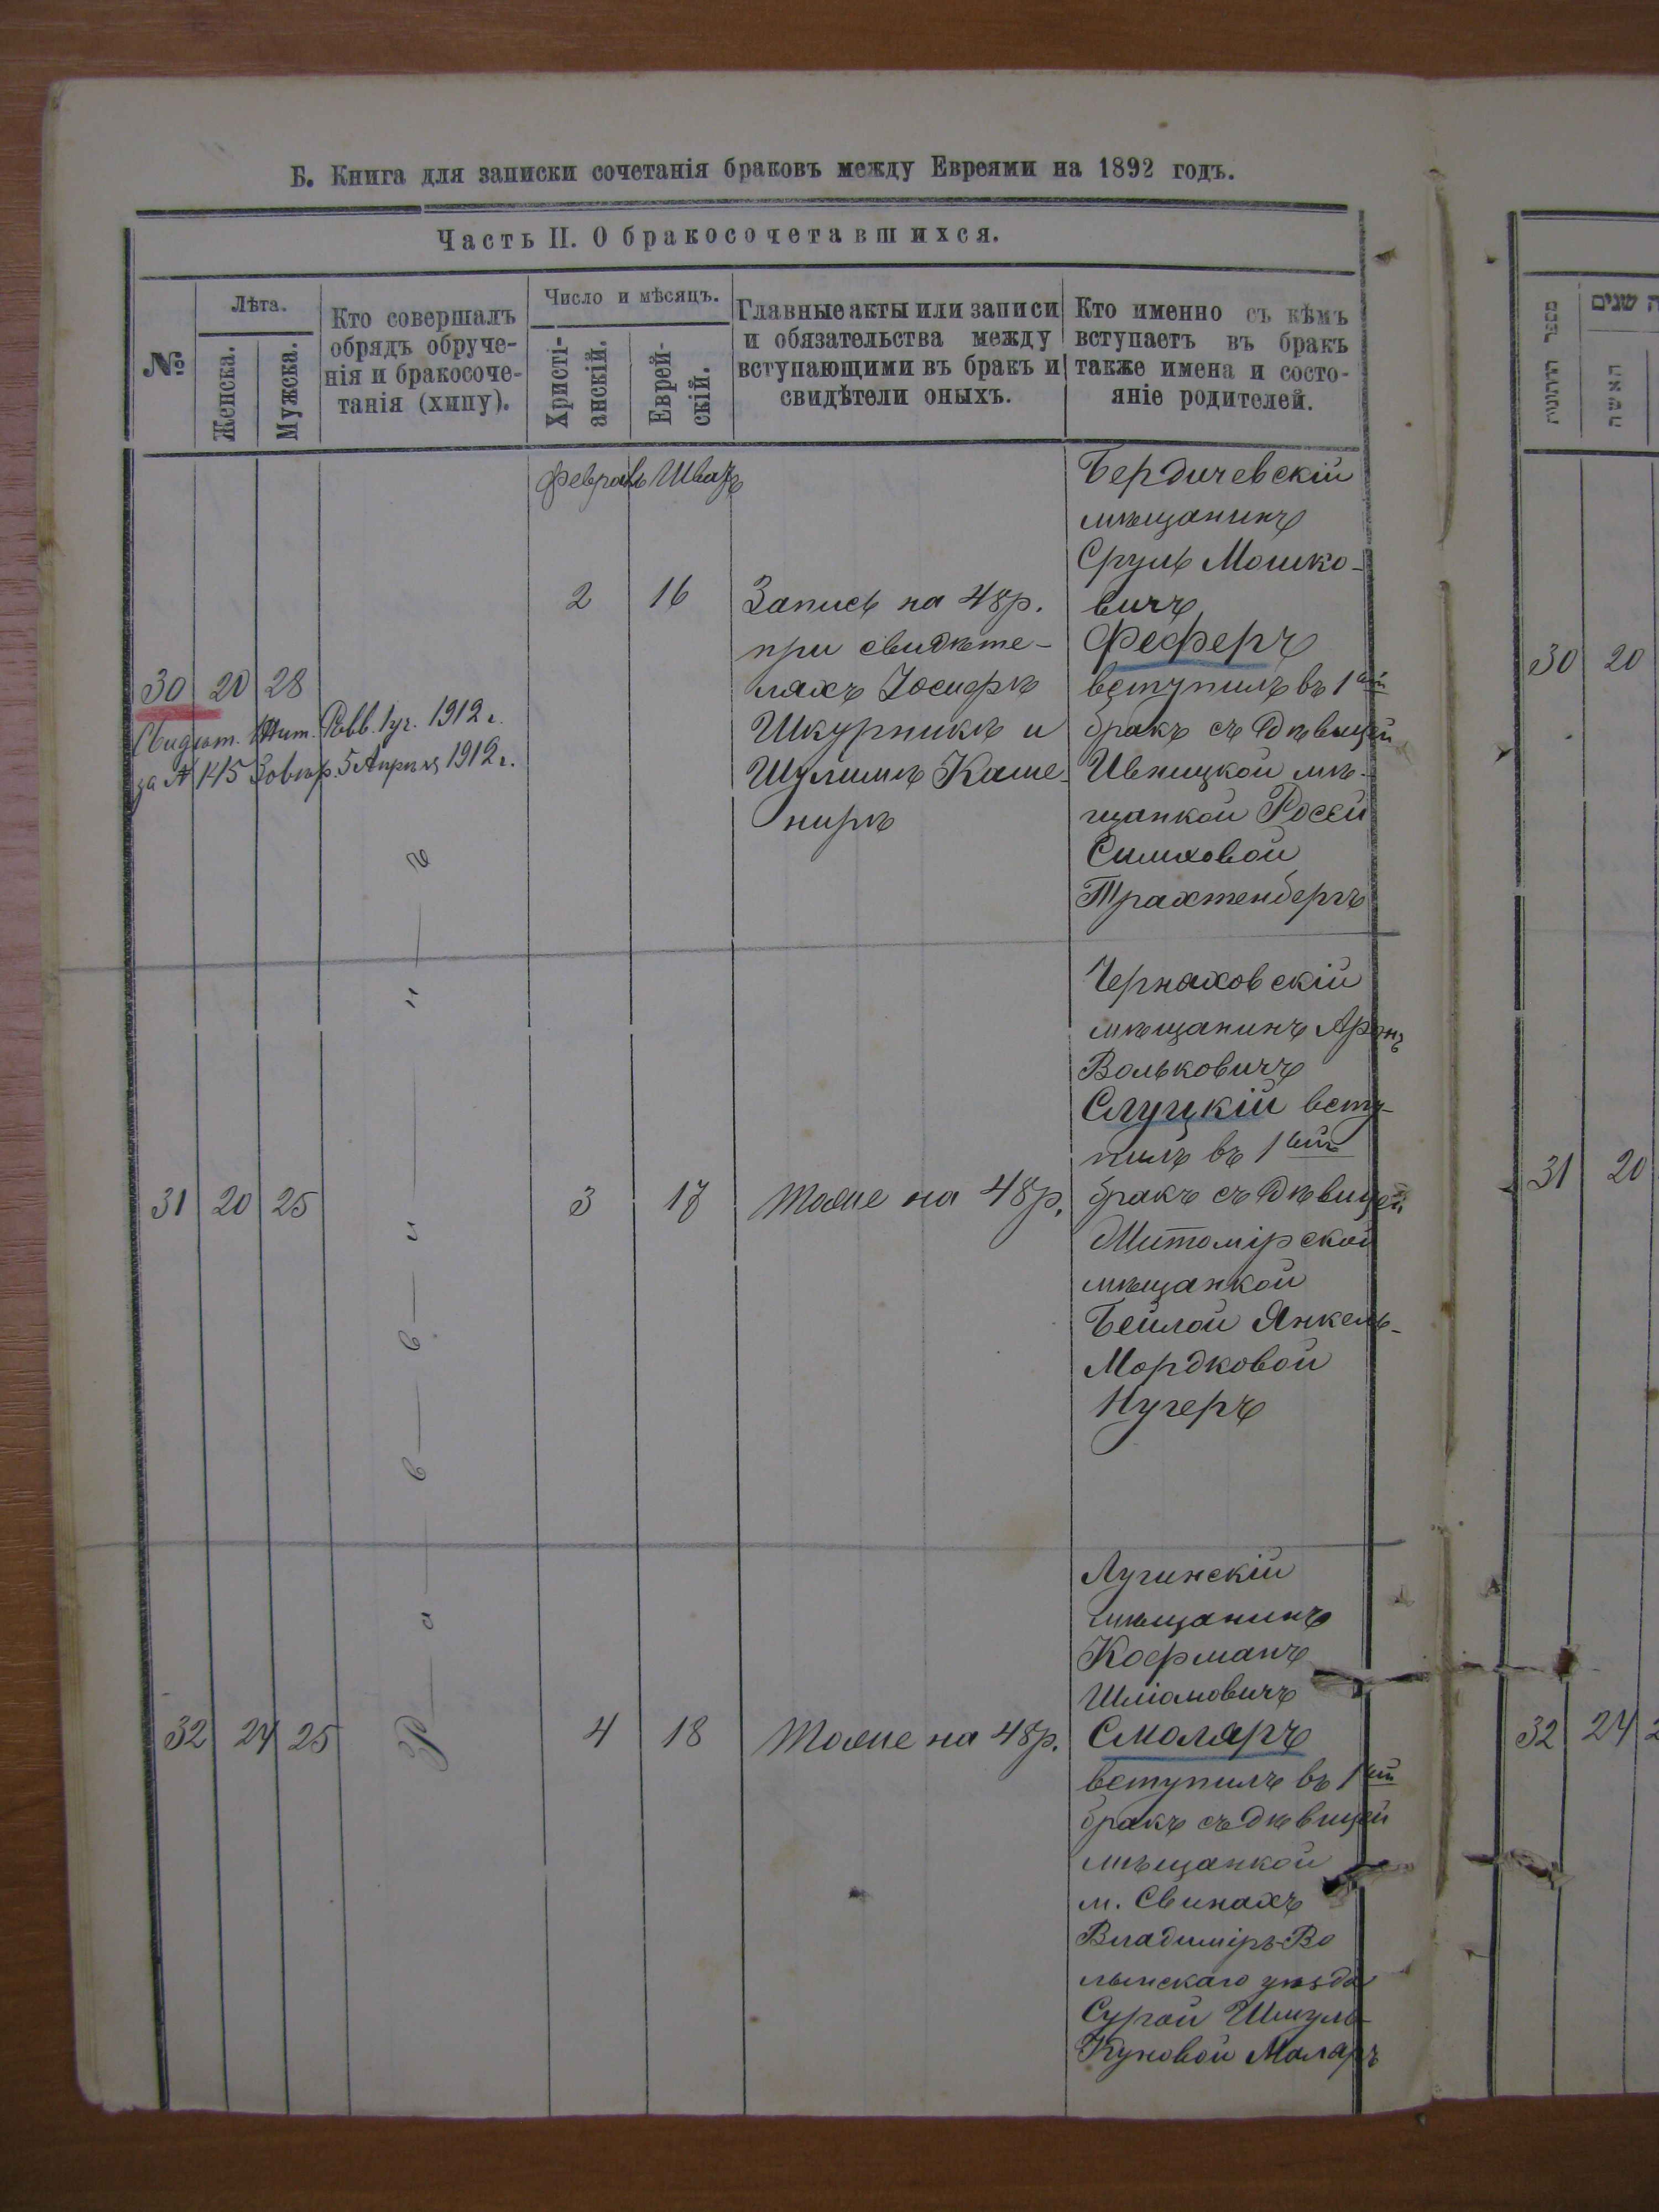 Б. Книга для записки сочетанія браковъ между Евреями на 1892 годъ.
Часть II. О бракосочетавшихся.
№
Лѣта.
Женска.
Мужска.
Кто совершалъ
обрядъ обруче-
нія и бракосоче-
танія (хипу).
Число и мѣсяцъ.
Христі-
анскій.
Еврей-
скій.
Главные акты или записи
и обязательства между
вступающими въ бракъ и
свидѣтели оныхъ.
Кто именно съ кѣмъ
вступаетъ въ бракъ
также имена и состо-
яніе родителей.
Февраль Шватъ
30 20 28
Свидѣт. Жит. Равв. 1 уч. 1912 г.
за № 145 5 Апрѣля 1912 г.
2 16
Запись на 48 р.
при свидѣте-
ляхъ Іосифѣ
Шкурникѣ и
Шулимѣ Каше-
нирѣ
Бердичевскій
мѣщанинъ
Сруль Мошко-
вичъ
Феферъ
вступилъ въ 1ый
бракъ съ дѣвицей
Ивницкой мѣ-
щанкой Росей
Симховой
Трахтенбергъ
31 20 25
3 17
Тоже на 48 р.
Черняховскій
мѣщанинъ Аронъ
Вольковичъ
Слуцкій всту-
пилъ въ 1ый
бракъ съ дѣвицей
Житомірской
мѣщанкой
Бейлой Янкель-
Мордковой
Нугеръ
32 24 25
4 18
Тоже на 48 р.
Лугинскій
мѣщанинъ
Кофманъ
Шліомовичъ
Смоляръ
вступилъ въ 1ый
бракъ съ дѣвицей
мѣщанкой
м. Свинахъ
Владиміръ-Во
лынскаго уѣзда
Сурой Шмуль-
Куновой Маляръ
מספר החתונות
שנים
האשה
30 20
31 20
32 24 2